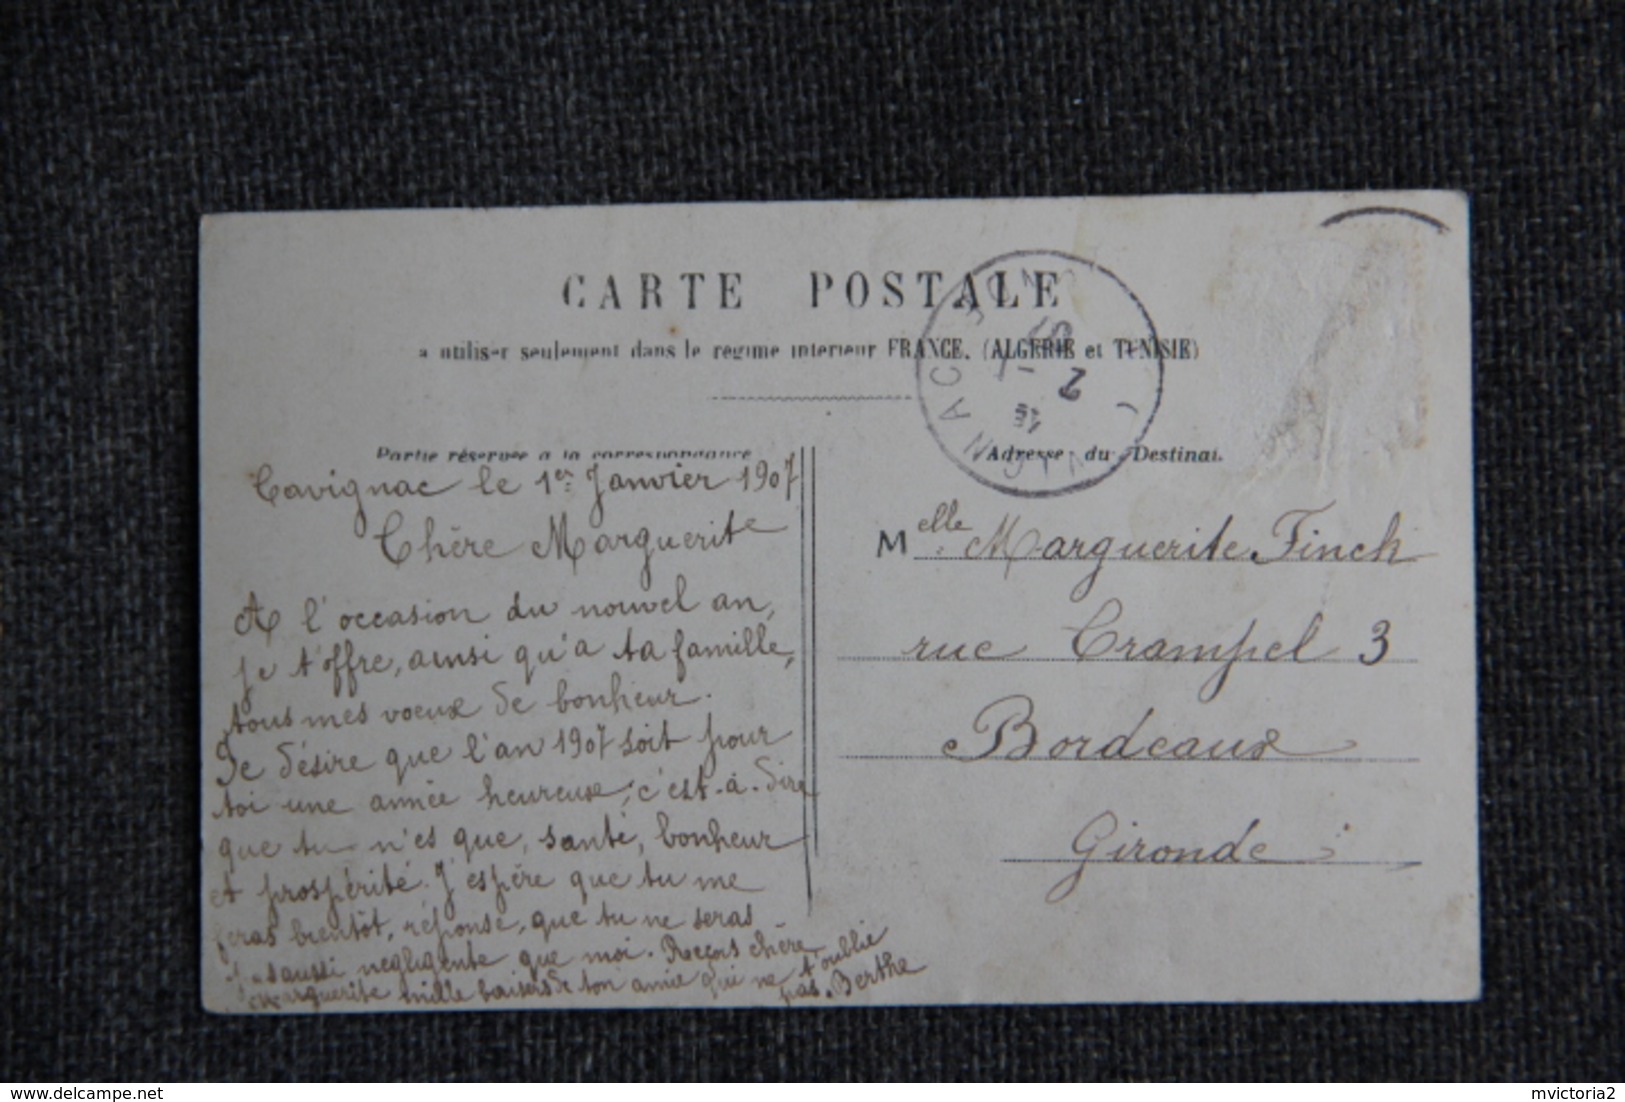 CARTE POSTALE
a utiliser seulement dans le régime intérieur FRANCE. (ALGERIE et TUNISIE)
Partie réservée a la correspondance
Adresse du Destinat.
Cavignac le 1er Janvier 1907
Chère Marguerite
A l'occasion du nouvel an,
je t'offre, ainsi qu'à ta famille,
tous mes voeux de bonheur.
Je désire que l'an 1907 soit pour
toi une année heureuse, c'est-à-dire
que tu n'es que, santé, bonheur
et prospérité. J'espère que tu me
feras bientôt, réponse, que tu ne seras
pas aussi negligente que moi. Reçois chère
Marguerite mille baisers de ton amie qui ne t'oublie
pas. Berthe
Melle Marguerite Finch
rue Crampel 3
Bordeaux
Gironde
CAVIGNAC
2
07
delcampe.net
mvictoria2